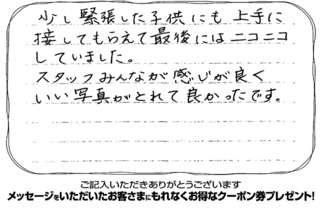 少し緊張した子供にも上手に
接してもらえて最後にはニコニコ
していました。
スタッフみんなが感じが良く
いい写真がとれて良かったです。
ご記入いただきありがとうございます
メッセージをいただいたお客さまにもれなくお得なクーポン券プレゼント!